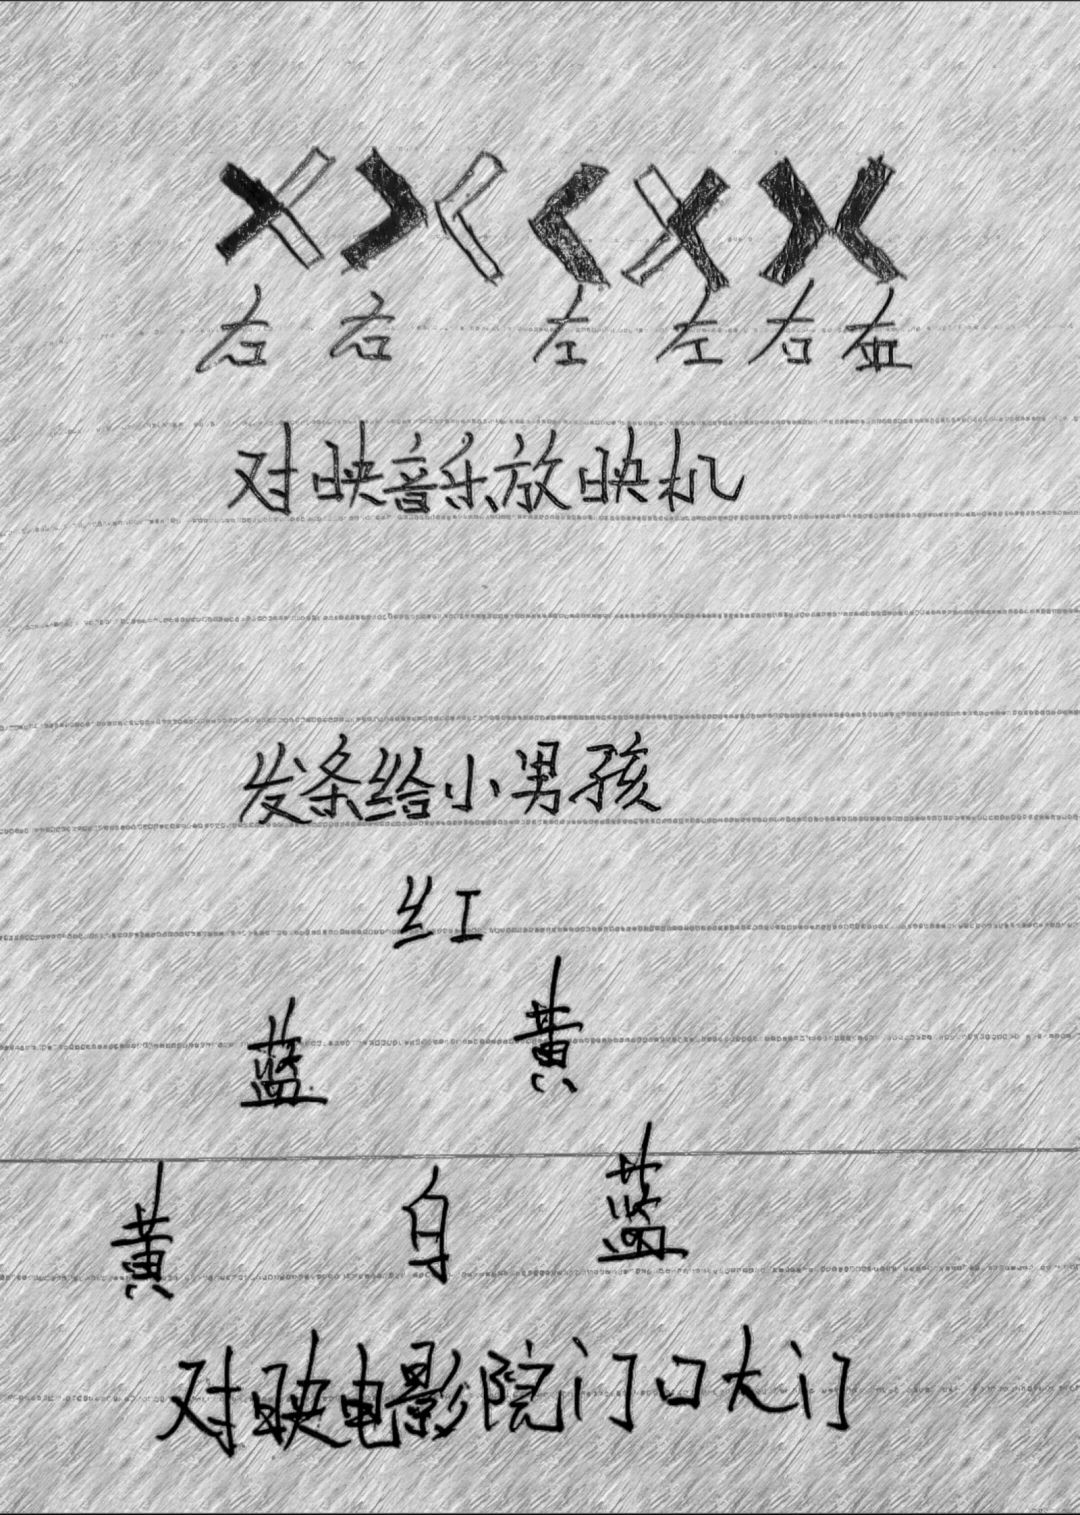 右 右 左 左 右
对映音乐放映机
发条给小男孩
红
蓝 黄
黄 白 蓝
对映电影院门口大门